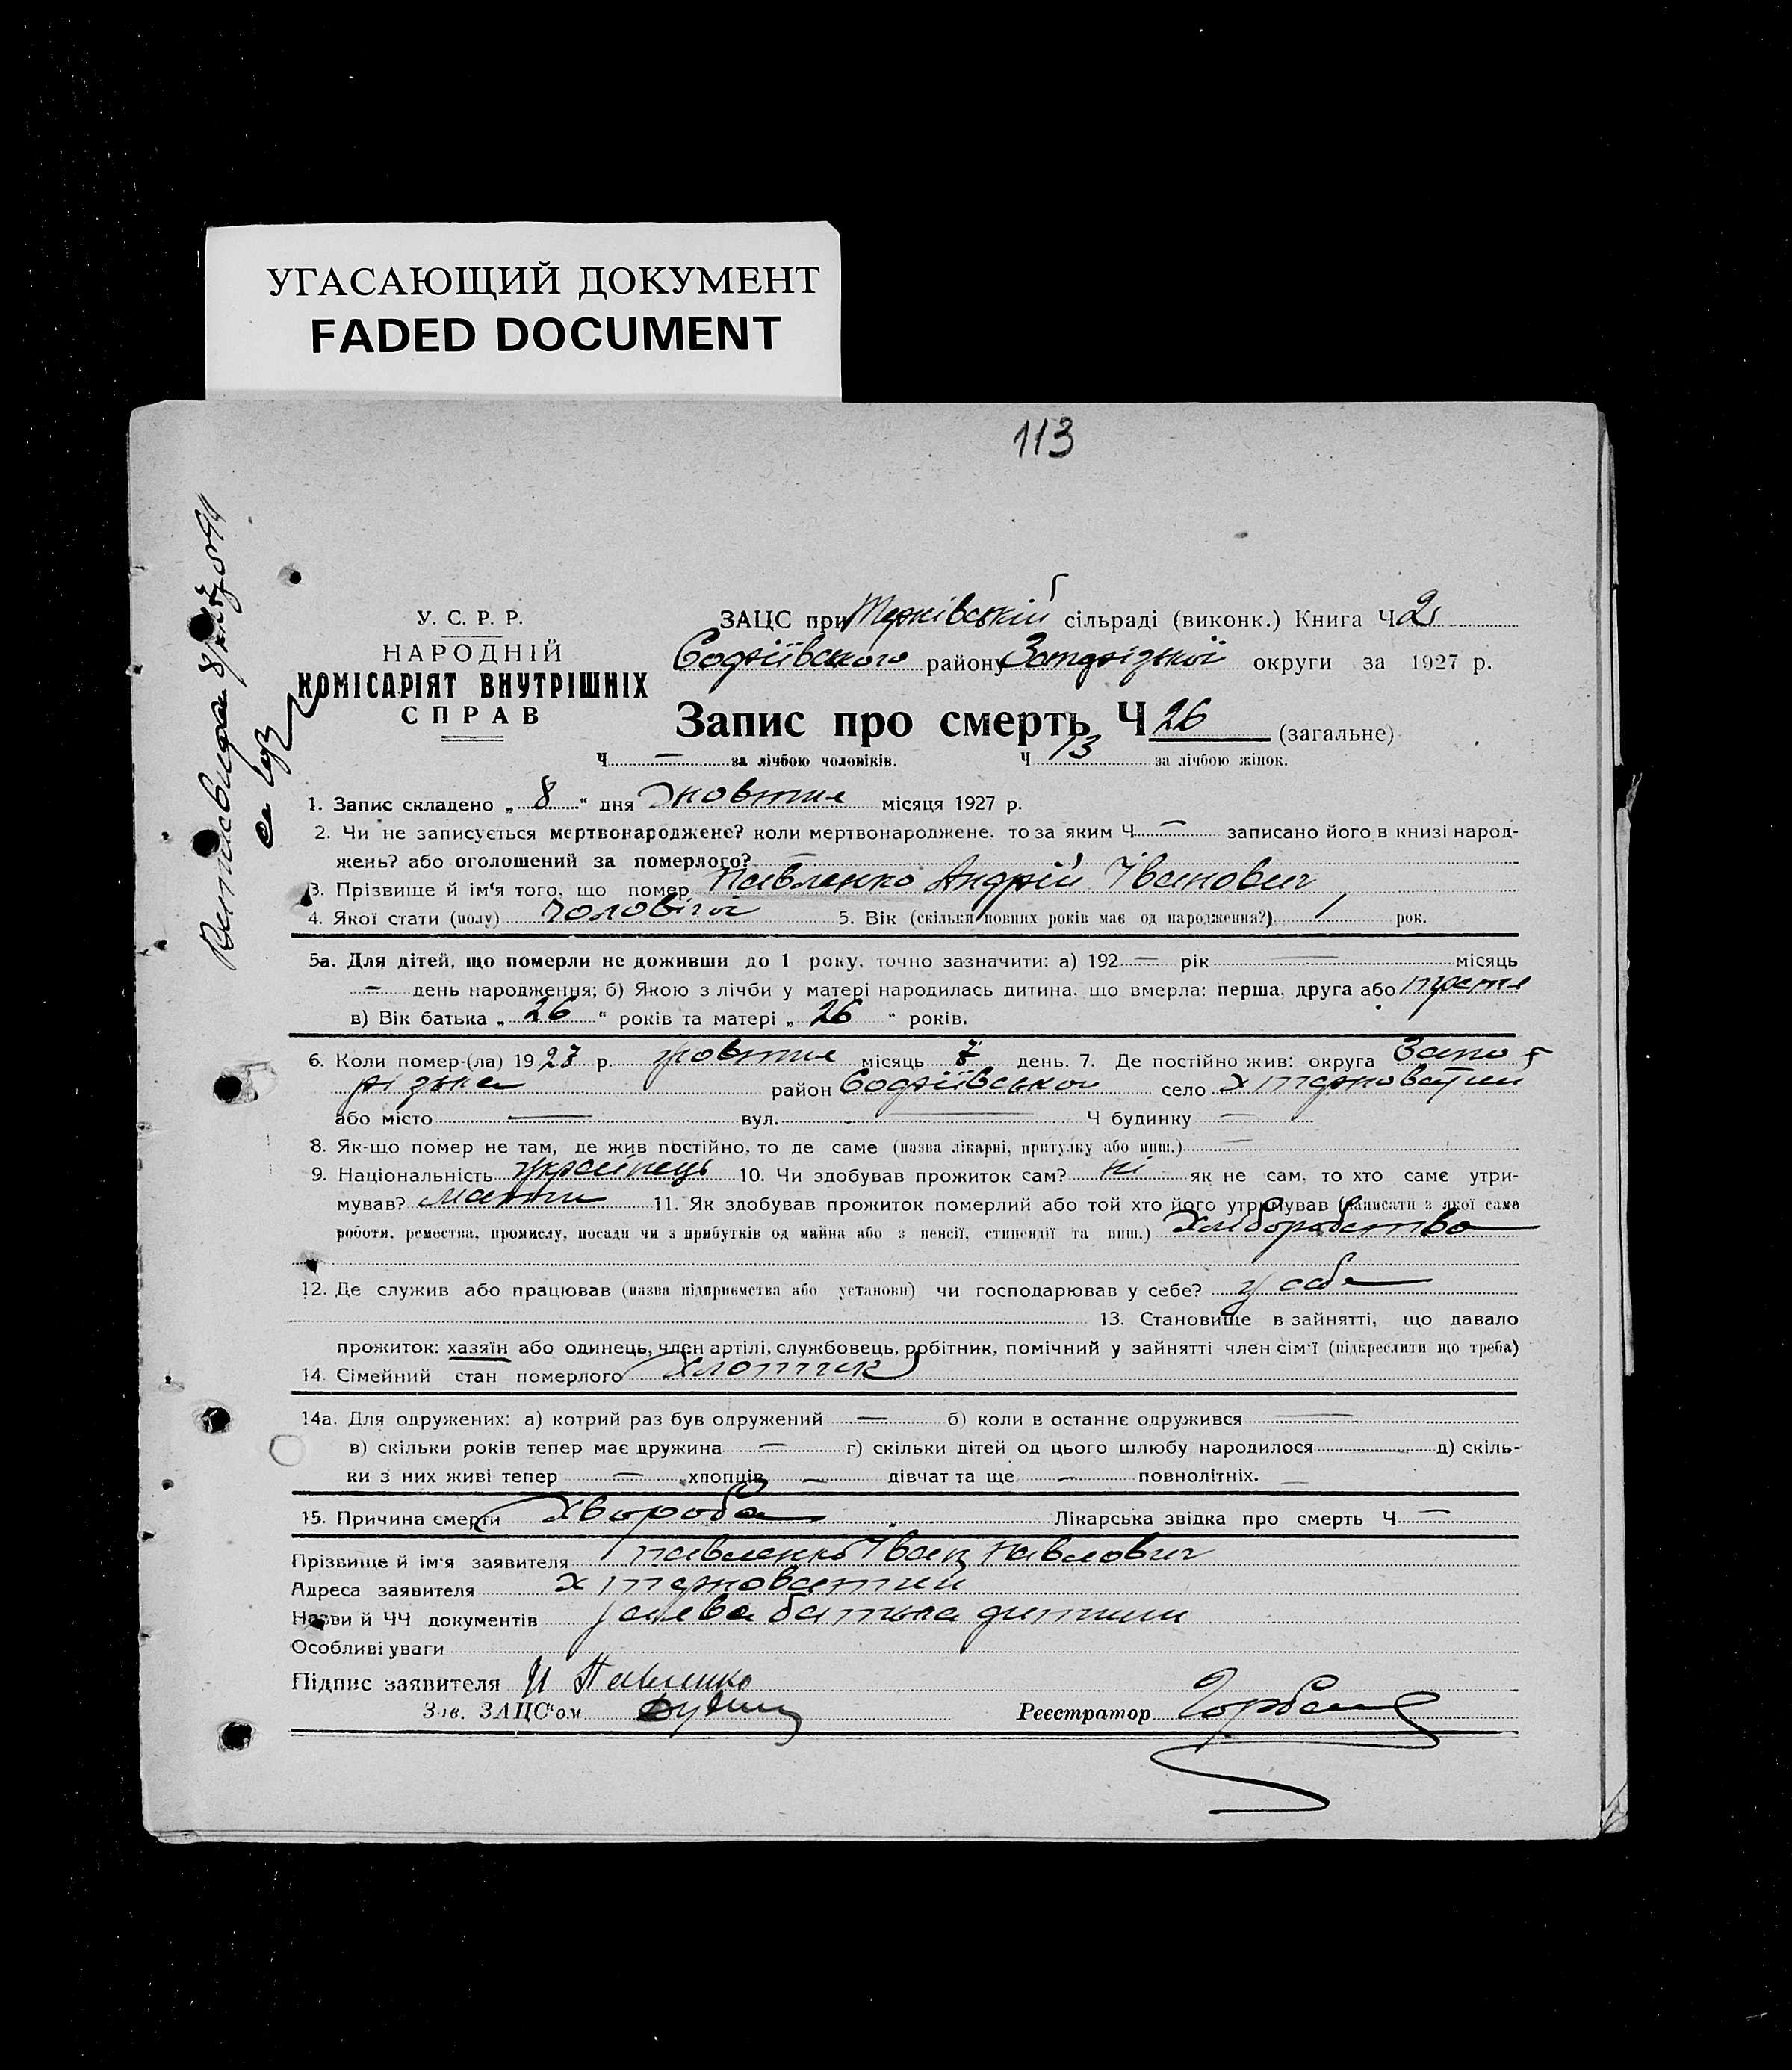 УГАСАЮЩИЙ ДОКУМЕНТ
FADED DOCUMENT
113
У. С. Р. Р.
НАРОДНІЙ
КОМІСАРІЯТ ВНУТРІШНІХ
СПРАВ
ЗАЦС при сільраді (виконк.) Книга Ч 2
Софіївського району Запорізької округи за 1927 р.
Запис про смерть Ч 26 (загальне)
Ч — за лічбою чоловіків. Ч 13 за лічбою жінок.
1. Запис складено „ 8 “ дня жовтня місяця 1927 р.
2. Чи не записується мертвонароджене? коли мертвонароджене, то за яким Ч — записано його в книзі народ-
жень? або оголошений за померлого? —
3. Прізвище й ім'я того, що помер Павленко Андрій Іванович
4. Якої стати (полу) чоловічої 5. Вік (скільки повних років має од народження?) 1 рок.
5а. Для дітей, що померли не доживши до 1 року, точно зазначити: а) 192 — рік — місяць
— день народження; б) Якою з лічби у матері народилась дитина, що вмерла: перша, друга або третя
в) Вік батька „ 26 “ років та матері „ 26 “ років.
6. Коли помер-(ла) 1927 р. жовтня місяць 7 день. 7. Де постійно жив: округа Запо
різька район Софіївської село х Терноватий
або місто — вул. — Ч будинку —
8. Як-що помер не там, де жив постійно, то де саме (назва лікарні, притулку або инш.) —
9. Національність українець 10. Чи здобував прожиток сам? ні як не сам, то хто саме утри-
мував? мати 11. Як здобував прожиток померлий або той хто його утримував (написати з якої саме
роботи, ремества, промислу, посади чи з прибутків од майна або з пенсії, стипендії та инш.) Хліборобство
12. Де служив або працював (назва підприємства або установи) чи господарював у себе? у себе
13. Становище в зайнятті, що давало
прожиток: хазяїн або одинець, член артілі, службовець, робітник, помічний у зайнятті член сім'ї (підкреслити що треба)
14. Сімейний стан померлого Хлопчик
14а. Для одружених: а) котрий раз був одружений — б) коли в останнє одружився —
в) скільки років тепер має дружина — г) скільки дітей од цього шлюбу народилося д) скіль-
ки з них живі тепер — хлопців — дівчат та ще — повнолітніх. —
15. Причина смерти Хвороба Лікарська звідка про смерть Ч —
Прізвище й ім'я заявителя Павленко Іван Павлович
Адреса заявителя х Терноватий
Назви й ЧЧ документів заява батька дитини
Особливі уваги
Підпис заявителя И Павленко
Зав. ЗАЦС'ом Реєстратор